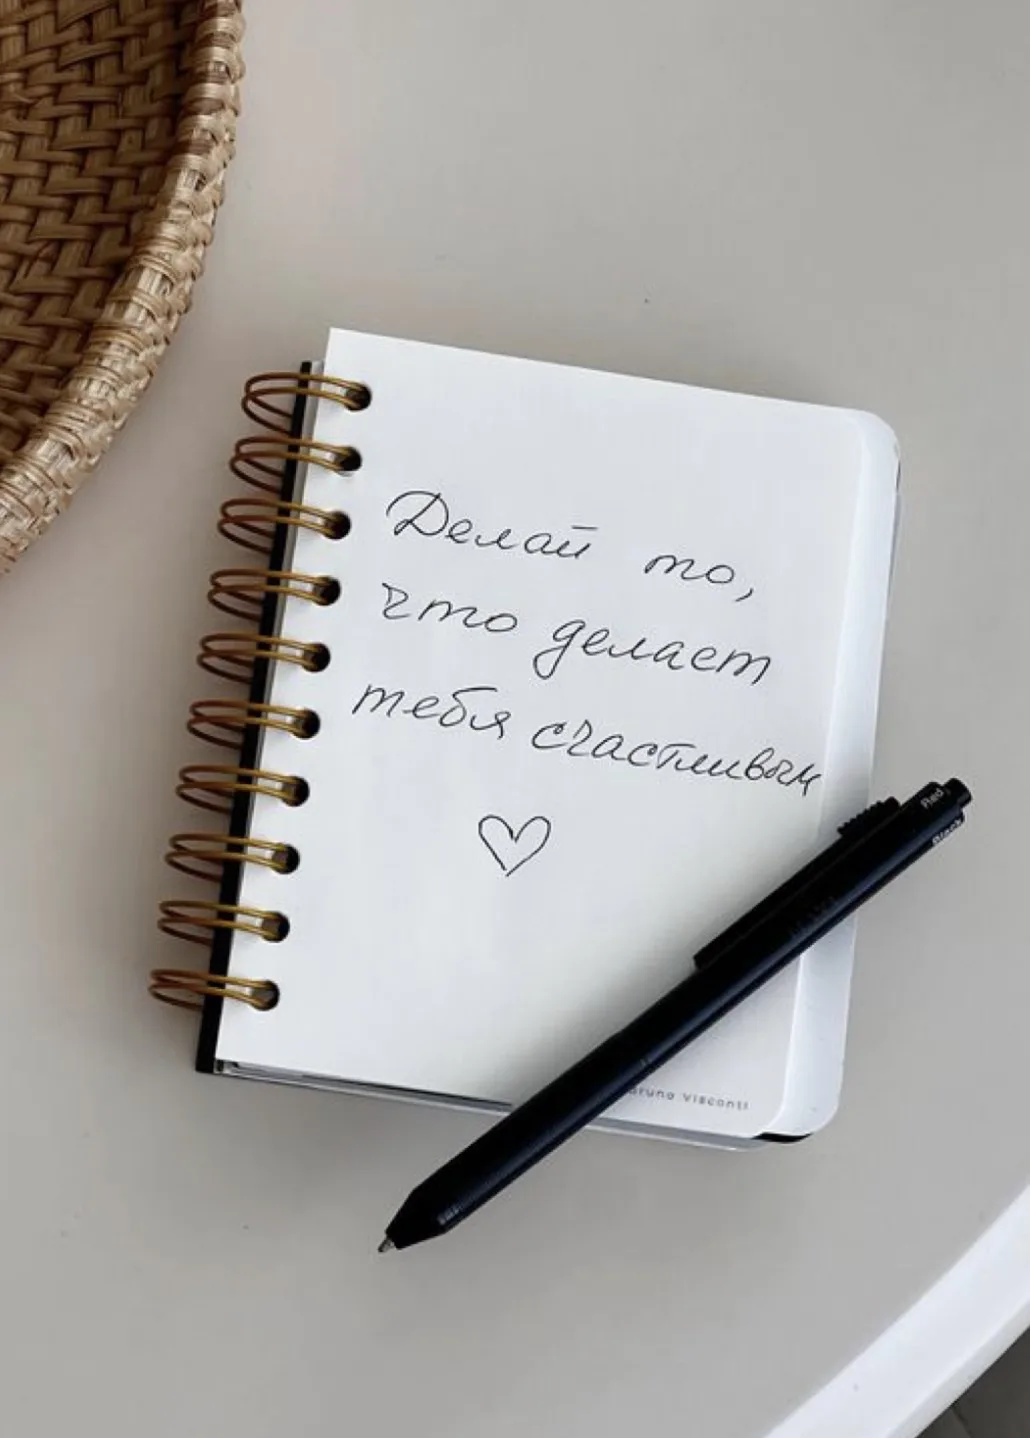 Делай то,
что делает
тебя счастливым
Bruno Visconti
Red
Black